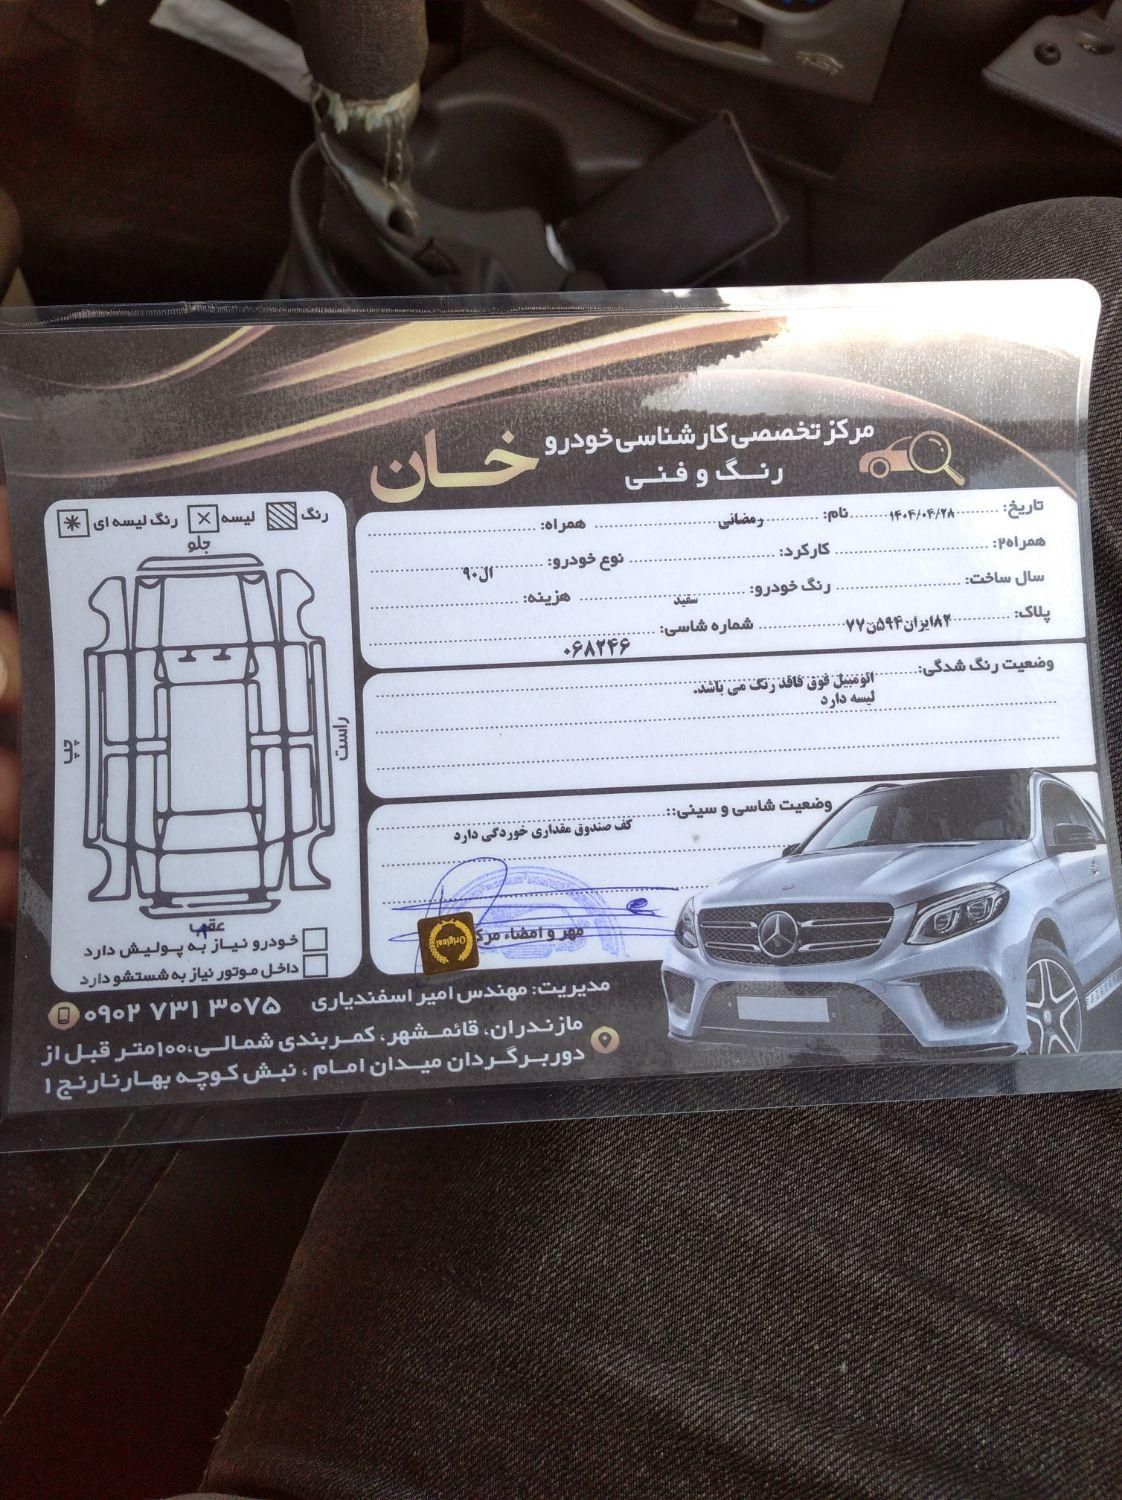 مرکز تخصصی کارشناسی خودرو
رنگ و فنی
خان
تاریخ: ۱۴۰۴/۰۴/۲۸ نام: رمضانی همراه:
همراه۲: کارکرد: نوع خودرو: ال۹۰
سال ساخت: رنگ خودرو: سفید هزینه:
پلاک: ۸۲ایران۵۹۴ن۷۷ شماره شاسی: ۰۶۸۲۴۶
وضعیت رنگ شدگی: اتومبیل فوق فاقد رنگ می باشد.
لیسه دارد
وضعیت شاسی و سینی:: کف صندوق مقداری خوردگی دارد
مهر و امضاء مرکز
Original
رنگ لیسه رنگ لیسه ای
جلو
چپ
راست
عقب
خودرو نیاز به پولیش دارد
داخل موتور نیاز به شستشو دارد
مدیریت: مهندس امیر اسفندیاری ۰۹۰۲ ۷۳۱ ۳۰۷۵
مازندران، قائمشهر، کمربندی شمالی،۱۰۰متر قبل از
دوربرگردان میدان امام ، نبش کوچه بهارنارنج ۱